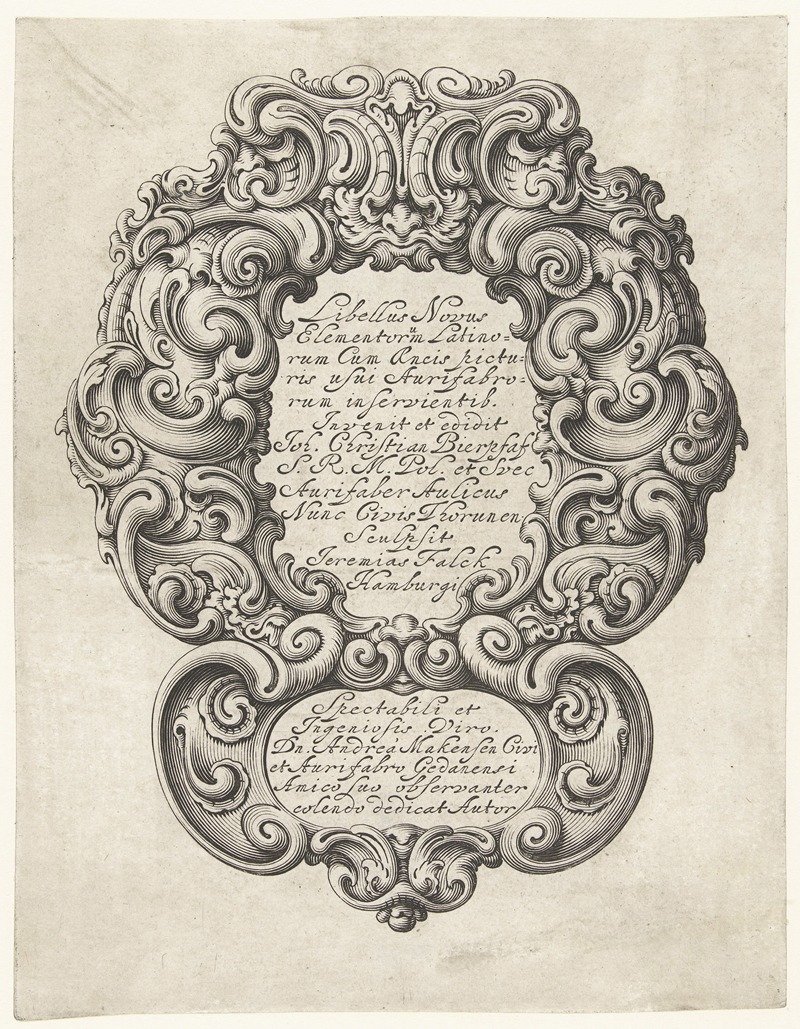 Libellus Novus
Elementorūm Latino=
rum Cum Æneis pictu=
ris usui Aurifabro=
rum inservientib.
Invenit et edidit
Joh. Christian Bierpfaf
S. R. M. Pol. et Svec
Aurifaber Aulicus
Nunc Civis Thorunen.
Sculpsit
Jeremias Falck
Hamburgi
Spectabili et
Ingeniosis Viro.
Dn. Andreá Makensen Civi
et Aurifabro Gedanensi
Amico suo observanter
colendo dedicat Autor